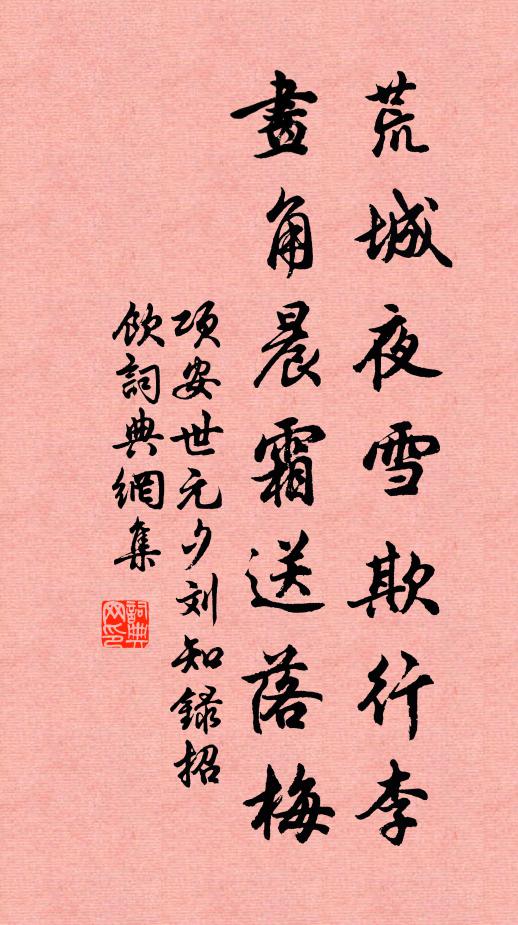 荒城夜雪欺行李
畫角晨霜送落梅
项安世元夕刘知録招
飲詞典網集
詞典
网印